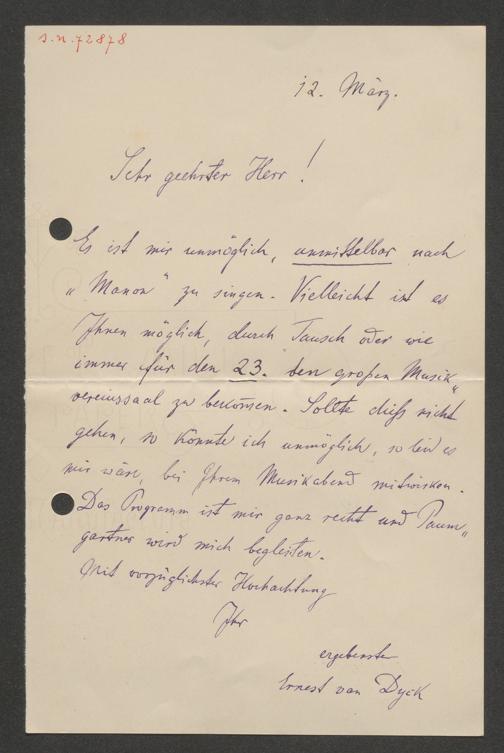 I.N.72878
12. März.
Sehr geehrter Herr!
Es ist mir unmöglich, unmittelbar nach
„Manon" zu singen. Vielleicht ist es
Ihnen möglich, durch Tausch oder wie
immer für den 23. den großen Musik„
vereinssaal zu bekom̄en. Sollte dieß nicht
gehen, so könnte ich unmöglich, so leid es
mir wäre, bei Ihrem Musikabend mitwirken.
Das Programm ist mir ganz recht und Paum„
gartner wird mich begleiten.
Mit vorzüglichster Hochachtung
Ihr
ergebenster
Ernest van Dyck